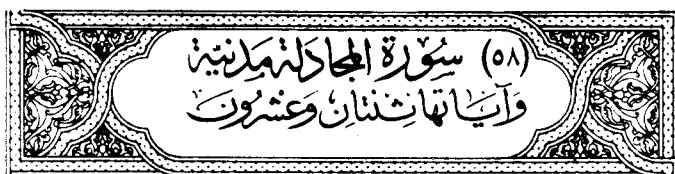 (٥٨) سُورَة المجَادلَة مَدنيَّة
وَآيَاتهَا ثِنْتَانِ وَعشْرُونَ